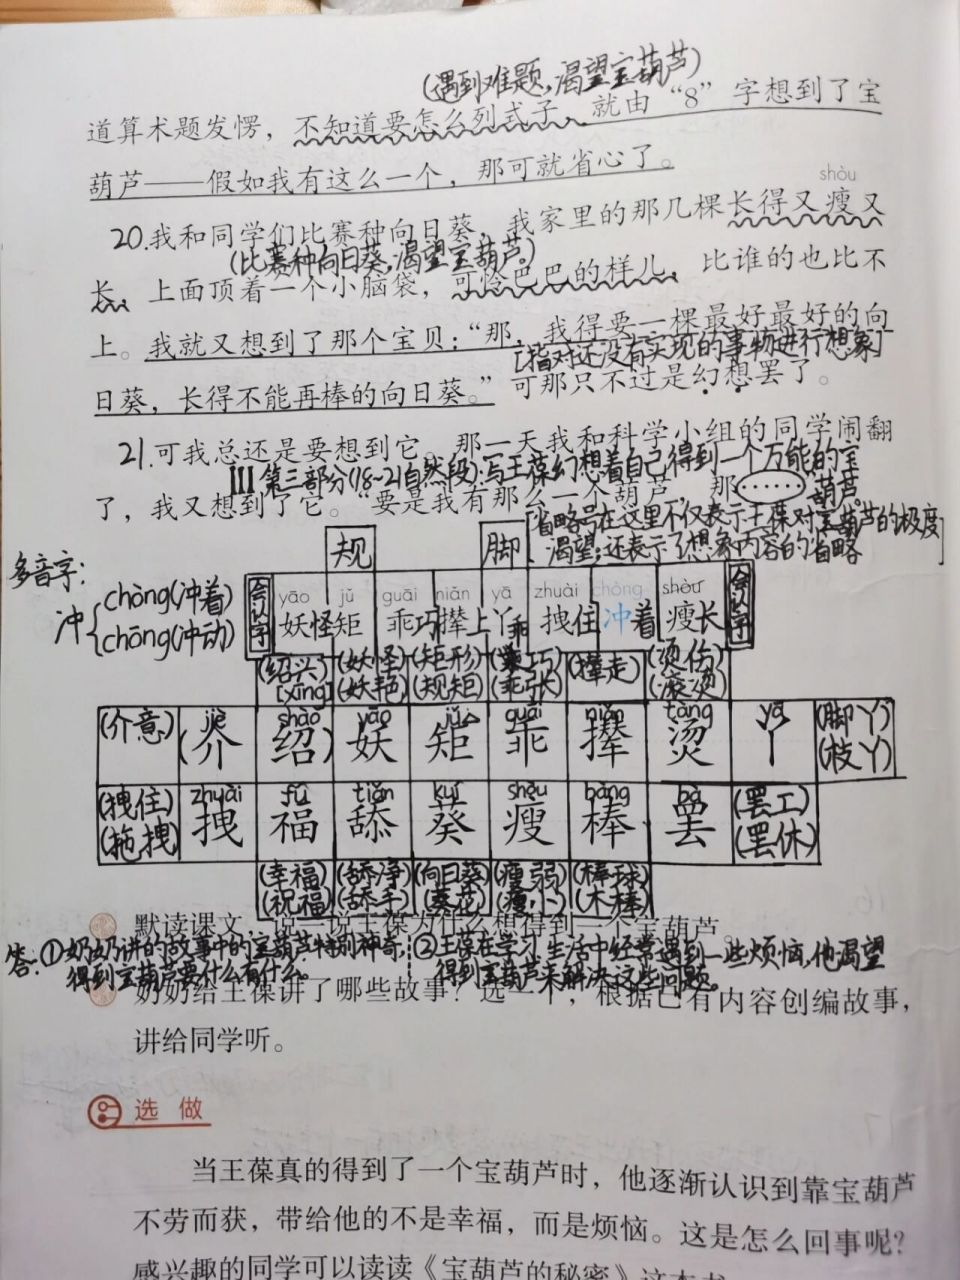 (遇到难题,渴望宝葫芦)
道算术题发愣，不知道要怎么列式子，就由“8”字想到了宝
葫芦——假如我有这么一个，那可就省心了。
shòu
20.我和同学们比赛种向日葵，我家里的那几棵长得又瘦又
(比赛种向日葵,渴望宝葫芦。)
长，上面顶着一个小脑袋，可怜巴巴的样儿，比谁的也比不
上。我就又想到了那个宝贝：“那，我得要一棵最好最好的向
[指对还没有实现的事物进行想象]
日葵，长得不能再棒的向日葵。”可那只不过是幻想罢了。
21.可我总还是要想到它。那一天我和科学小组的同学闹翻
Ⅲ第三部分(18-21自然段):写王葆幻想着自己得到一个万能的宝葫芦。
了，我又想到了它。“要是我有那么一个葫芦，那……
[省略号在这里不仅表示王葆对宝葫芦的极度
渴望;还表示了想象内容的省略]
规 脚
多音字:
冲{chòng(冲着)
chōng(冲动)
会认字 yāo jǔ guāi niǎn yā zhuài chòng shòu 会认字
妖怪 矩 乖巧 撵上 丫乖 拽住 冲着 瘦长
(绍兴) (妖怪) (矩形) (乘巧) (撵走) (烫伤)
[xīng] (妖艳) (规矩) (乖张) (滚烫)
(介意) jiè shào yāo jǔ guāi niǎn tàng yā (脚丫)
介 绍 妖 矩 乖 撵 烫 丫 (枝丫)
(拽住) zhuài fú tiǎn kuí shòu bàng bà (罢工)
(拖拽) 拽 福 舔 葵 瘦 棒 罢 (罢休)
(幸福) (舔净) (向日葵) (瘦弱) (棒球)
(祝福) (舔手) (葵花) (瘦小) (木棒)
默读课文，说一说王葆为什么想得到一个宝葫芦。
答:①奶奶讲的故事中的宝葫芦特别神奇,②王葆在学习生活中经常遇到一些烦恼,他渴望
得到宝葫芦要什么有什么。得到宝葫芦来解决这些问题。
奶奶给王葆讲了哪些故事？选一个，根据已有内容创编故事，
讲给同学听。
选做
当王葆真的得到了一个宝葫芦时，他逐渐认识到靠宝葫芦
不劳而获，带给他的不是幸福，而是烦恼。这是怎么回事呢？
感兴趣的同学可以读读《宝葫芦的秘密》这本书。